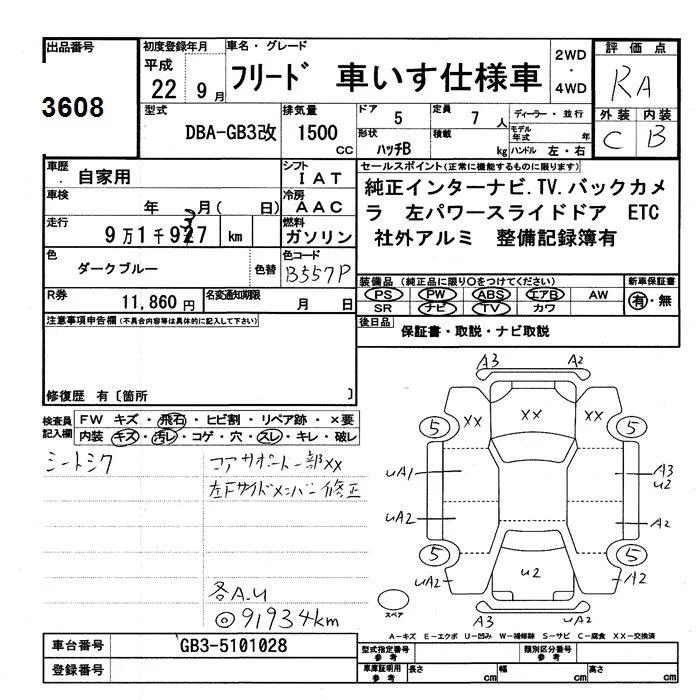 出品番号
3608
初度登録年月
平成
22 9月
車名・グレード
フリード 車いす仕様車
2WD
・
4WD
評価点
RA
外装 内装
C B
型式
DBA-GB3改
排気量
1500
CC
ドア
5
定員
7 人
ディーラー・並行
モデル
年式 年
形状
ハッチB
積載
kg
ハンドル 左・右
車歴
自家用
シフト
IAT
車検
年 月( 日)
冷房
AAC
走行
km
燃料
ガソリン
色
ダークブルー
色替
色コード
B557P
R券
11,860円
名変通知期限
月 日
セールスポイント(正常に機能するものに限ります)
純正インターナビ.TV.バックカメ
ラ 左パワースライドドア ETC
社外アルミ 整備記録簿有
装備品(純正品に限り○をつけてください)
PS PW ABS エアB AW
SR ナビ TV カワ
新車保証書
有・無
後日品
保証書・取説・ナビ取説
注意事項申告欄(不具合内容等は具体的に記入して下さい)
修復歴 有〔箇所 〕
検査員
記入欄
FW キズ・飛石・ヒビ割・リペア跡・×要
内装 キズ・汚レ・コゲ・穴・スレ・キレ・破レ
シートシワ
コアサポート一部XX
左Fサイドメンバー修正
各A.U
◎91934km
A3 A2
5 XX XX XX 5
uA1 A3
u2
uA2 A2
5 5
uA2 u2 A2
スペア
A3 A2
A-キズ E-エクボ U-凹み W-補修跡 S-サビ C-腐食 XX-交換済
車台番号
GB3-5101028
登録番号
型式指定番号
参考
類別区分番号
参考
車庫証明用
参考
長さ cm
幅 cm
高さ cm